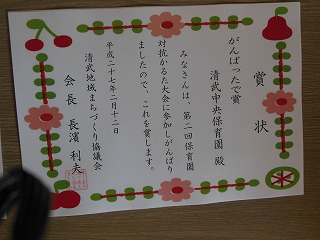 賞状
がんばったで賞
清武中央保育園 殿
みなさんは、第二回保育園
対抗かるた大会に参加しがんばり
ましたので、これを賞します。
平成二十七年二月十二日
清武地域まちづくり協議会
会長 長濱 利夫